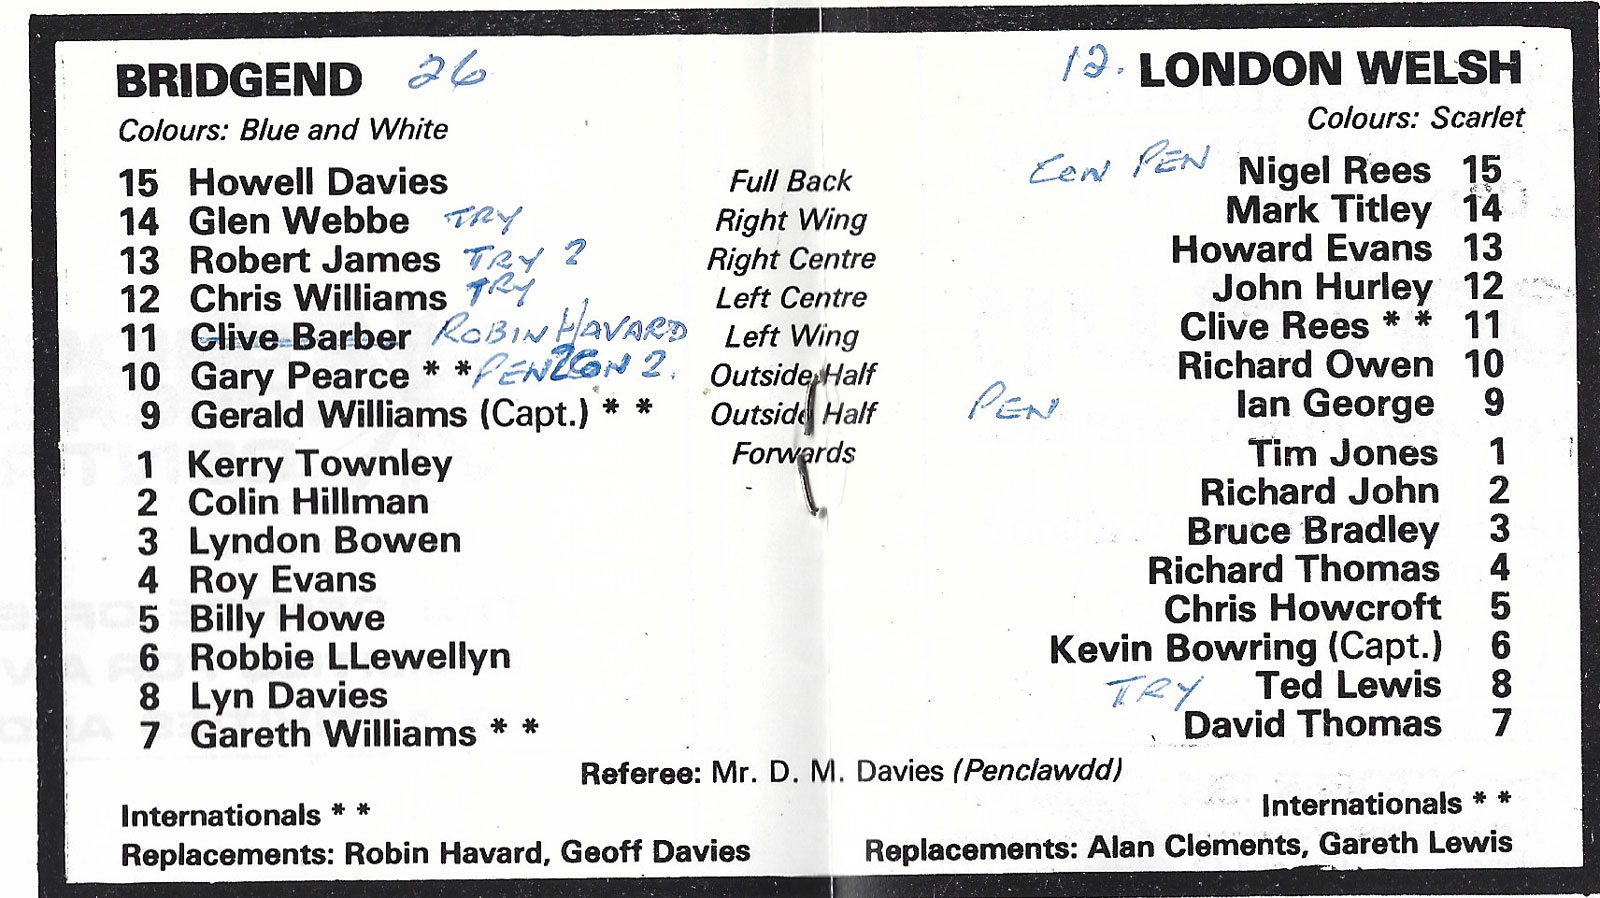 BRIDGEND 26 12. LONDON WELSH
Colours: Blue and White Colours: Scarlet
15 Howell Davies Full Back CON PEN Nigel Rees 15
14 Glen Webbe TRY Right Wing Mark Titley 14
13 Robert James TRY 2 Right Centre Howard Evans 13
12 Chris Williams TRY Left Centre John Hurley 12
11 Clive Barber ROBIN HAVARD Left Wing Clive Rees * * 11
10 Gary Pearce * * PEN 2 CON 2. Outside Half Richard Owen 10
9 Gerald Williams (Capt.) * * Outside Half PEN Ian George 9
Forwards
1 Kerry Townley Tim Jones 1
2 Colin Hillman Richard John 2
3 Lyndon Bowen Bruce Bradley 3
4 Roy Evans Richard Thomas 4
5 Billy Howe Chris Howcroft 5
6 Robbie LLewellyn Kevin Bowring (Capt.) 6
8 Lyn Davies TRY Ted Lewis 8
7 Gareth Williams * * David Thomas 7
Referee: Mr. D. M. Davies (Penclawdd)
Internationals * * Internationals * *
Replacements: Robin Havard, Geoff Davies Replacements: Alan Clements, Gareth Lewis